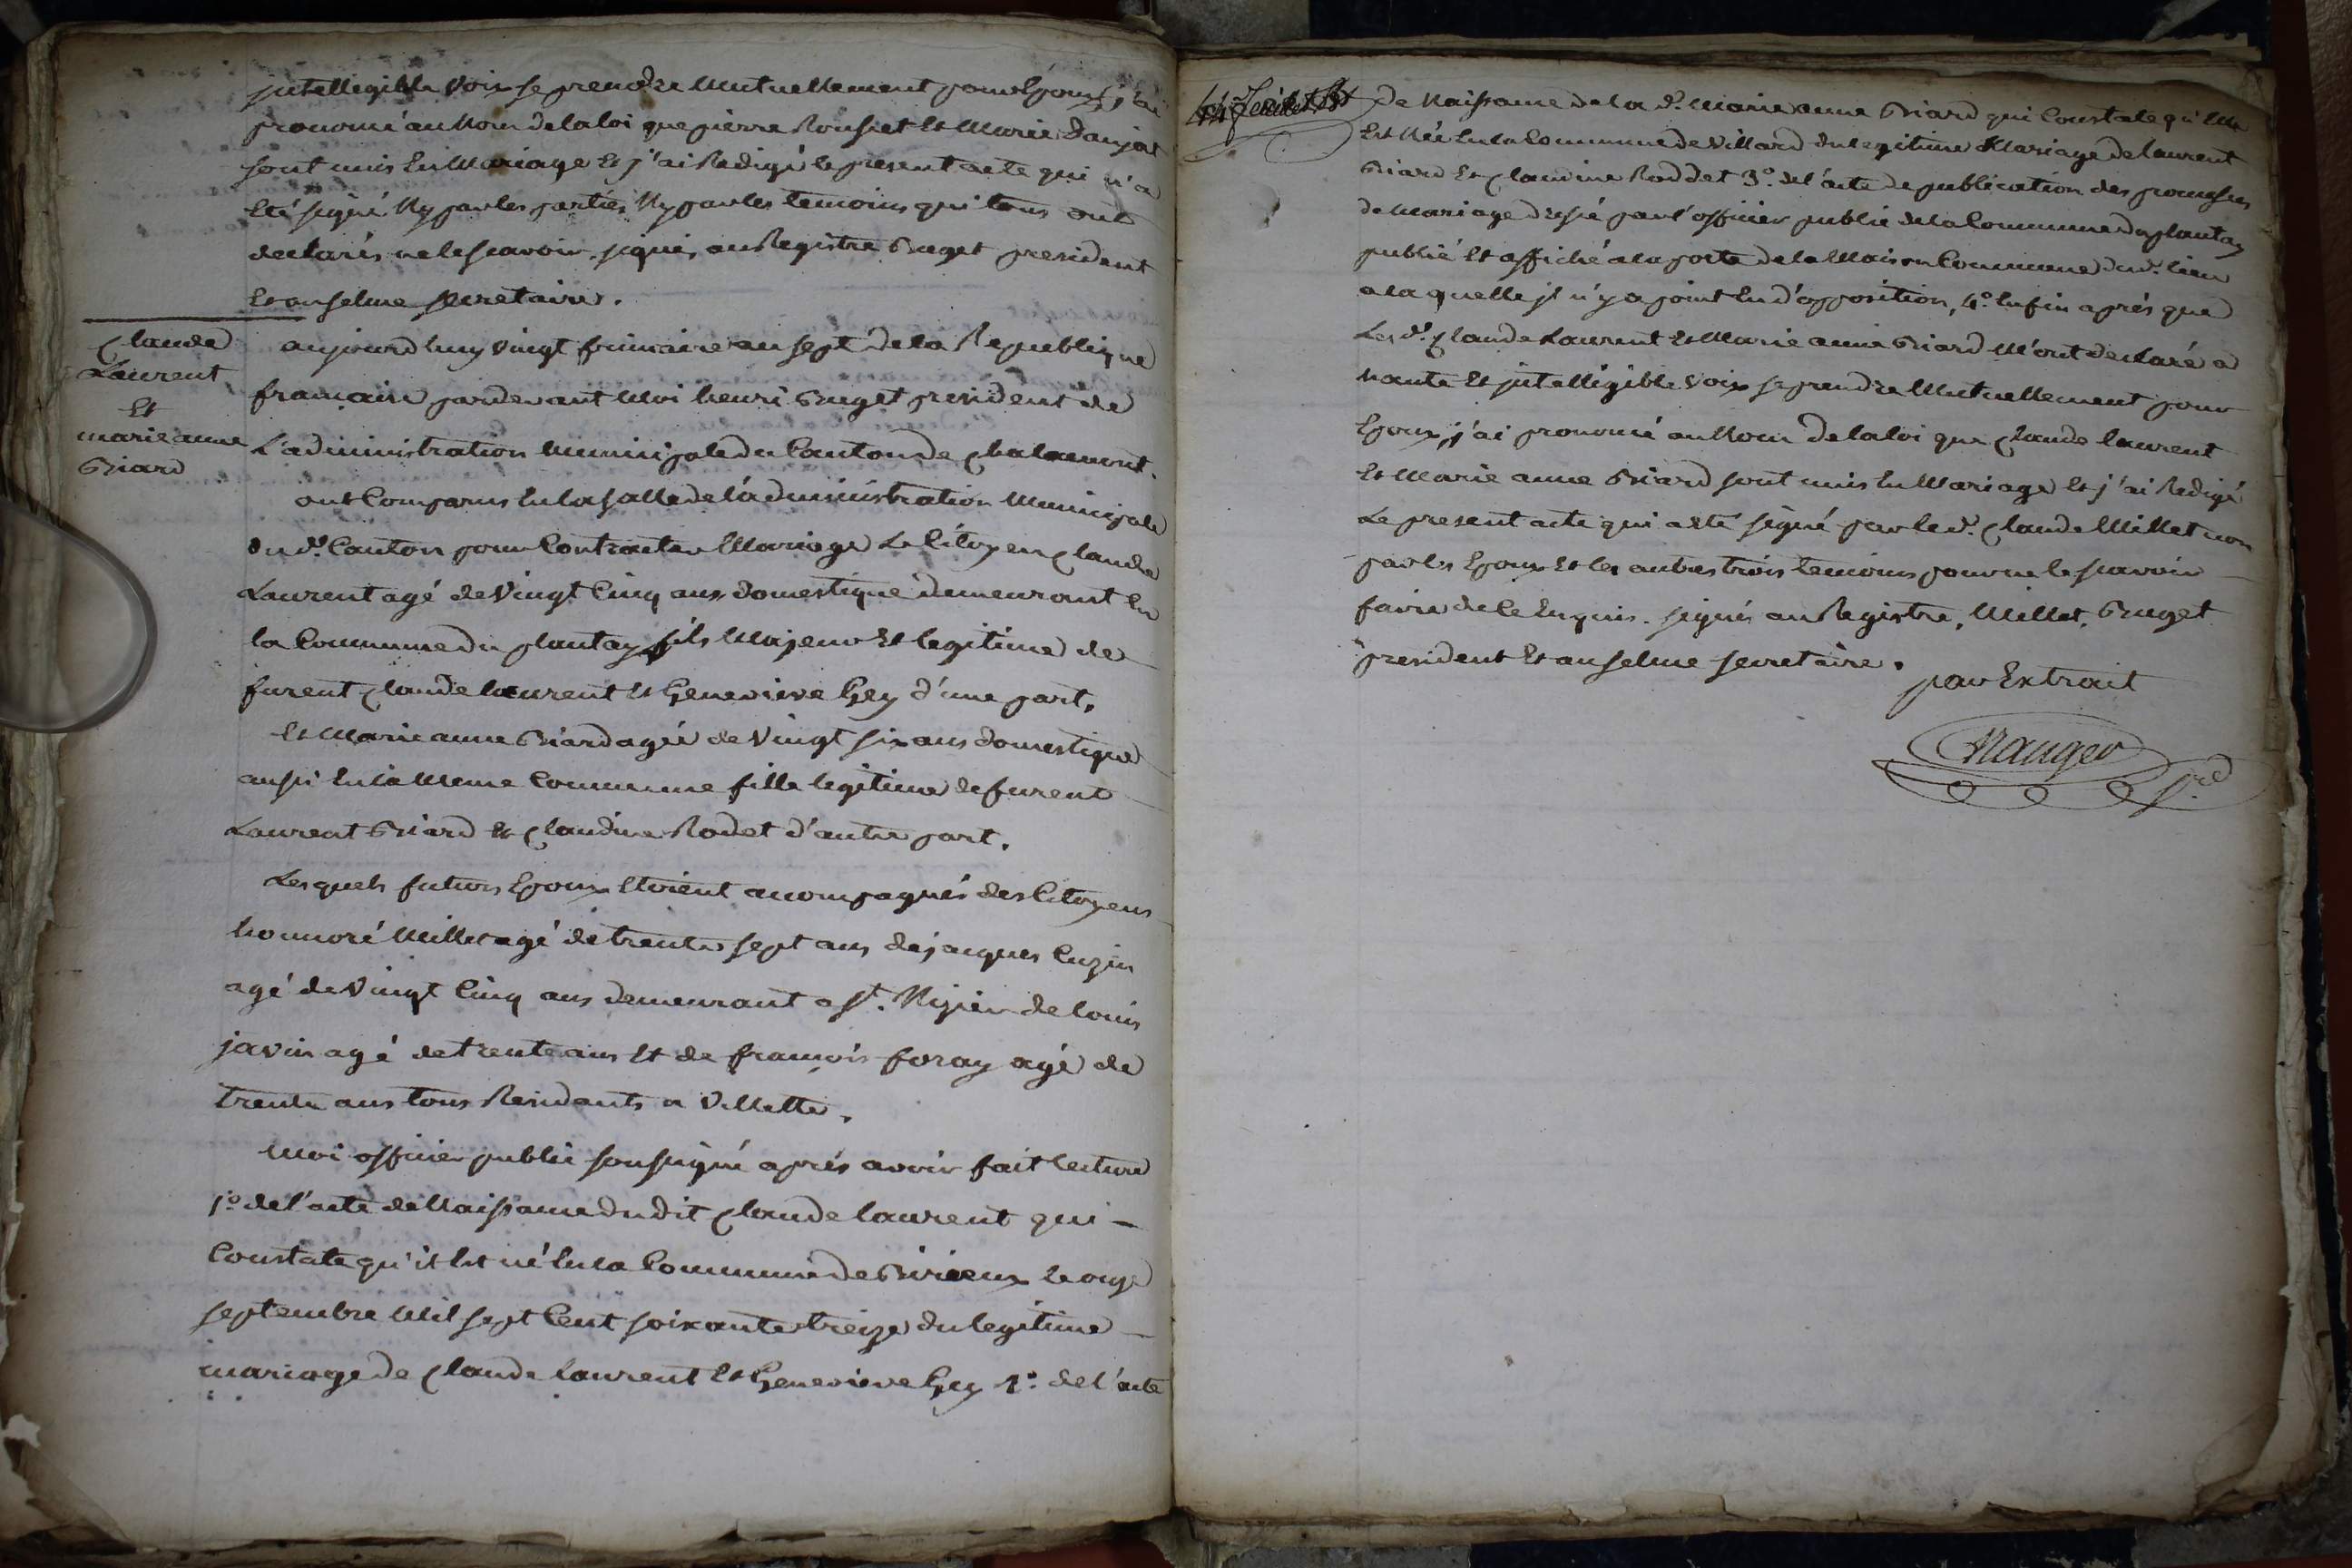 jntelligible voix se prendre mutuellement pour Epoux, j'ai
prononcé au Nom de la loi que pierre Rousset et Marie Danjat
sont unis En Mariage Et j'ai Redigé le present acte qui n'a
Eté signé Ny par les parties Ny par les temoins qui tous ont
declarés ne le scavoir. signés au Registre Buget president
Et anselme secretaire.
Claude
Laurent
Et
marie anne
Briard
aujourd huy vingt frimaire an sept de la Republique
francaise pardevant Moi henri Buget president de
L'administration Municipale du Canton de Chalamont.
ont Comparus En la salle de l'administration Municipale
du d. Canton pour Contracter Mariage Le Citoyen Claude
Laurent agé de vingt Cinq ans domestique demeurant En
la Commune du plantay fils Majeur Et legitime de
furent Claude laurent Et Genevieve Gey d'une part.
Et Marie anne Briard agée de vingt six ans domestique
aussi En la Meme Commune fille legitime de furent
Laurent Briard Et Claudine Rodet d'autre part.
Lesquels futurs Epoux Etoient acompagnés des Citoyens
honnoré Millet agé de trente sept ans de jacques Cuzin
agé de vingt Cinq ans demeurant a St. Nizier de louis
javin agé de trente ans Et de francois foray agé de
trente ans tous Residants a villette.
Moi officier public soussigné aprés avoir fait lecture
1.° de l'acte de Naissance du dit Claude laurent qui
Constate qu'il Est né En la Commune de Birieux le onze
septembre Mil sept Cent soixante treize du legitime
mariage de Claude laurent Et Genevieve Gey 2.° de l'acte
de Naissance de la d. Marie anne Briard qui Constate qu'Elle
Est Née En la Commune de villard du legitime Mariage de laurent
Briard Et Claudine Roddet 3.° de l'acte de publication des promesses
de Mariage dressé par l'officier public de la Commune du plantay
publié Et affiché a la porte de la Maison Commune du d. lieu
a la quelle jl n'y a point Eu d'opposition, 4.° Enfin aprés que
Les d. Claude Laurent Et Marie anne Briard M'ont declaré a
haute Et jntelligible voix se prendre Mutuellement pour
Epoux, j'ai prononcé au Nom de la loi que Claude laurent
Et Marie anne Briard sont unis En Mariage Et j'ai Redigé
Le present acte qui a Eté signé par le d. Claude Millet non
par les Epoux Et les autres trois temoins pour ne le scavoir
faire de Ce Enquis. signés au Registre, Millet, Buget
president Et anselme secretaire.
par Extrait